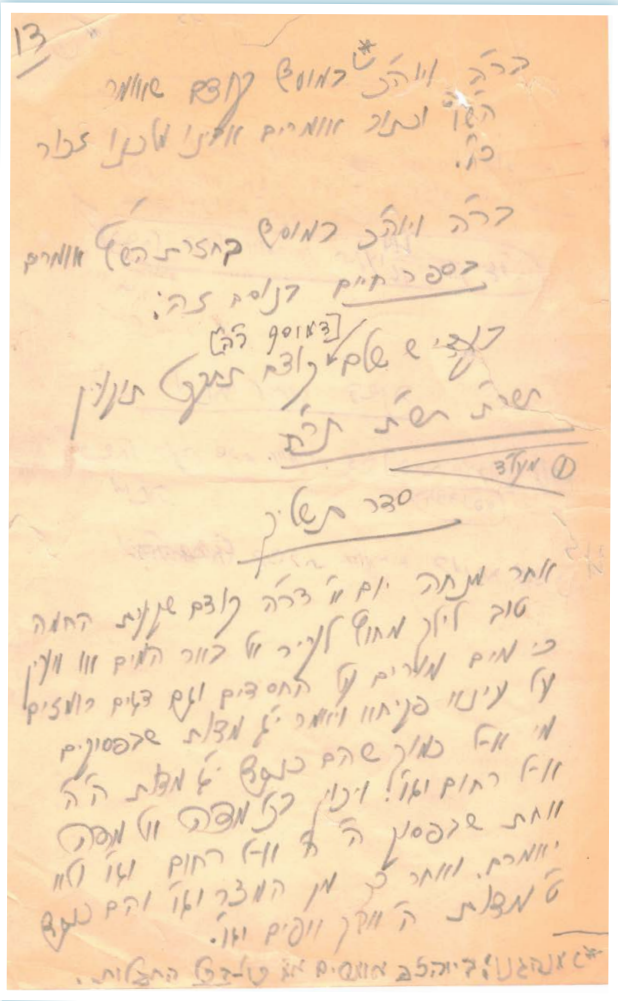 13
בר"ה ויוה"כ במוסף* קודם שאומר
הש"ץ וכתוב אומרים אבינו מלכנו זכור
כו'.
בר"ה ויוה"כ במוסף בחזרת הש"ץ אומרים
בספר חיים בנוסח זה:
[במוסף ר"ה]
קודם תקיעת
תשר"ת תש"ת תר"ת
① מע"ד
סדר תשליך
אחר מנחה יום א' דר"ה קודם שקיעת החמה
טוב לילך מחוץ לעיר אל באר המים או מעין
כי מים מורים על החסדים וגם דגים רומזים
על עינא פקיחא ויאמר י"ג מדות שבפסוקים
מי א-ל כמוך שהם כנגד י"ג מדות ה' ה'
א-ל רחום וגו'. ויכוין בכל מדה אל מדה
אחת שבפסוק ה' ה' א-ל רחום וגו' ולא
יאמרם. ואחר כך מן המצר וגו' והם כנגד
ט' מדות ה' ארך אפים וגו'.
ביוהכ"פ מוסיפים התפלות.